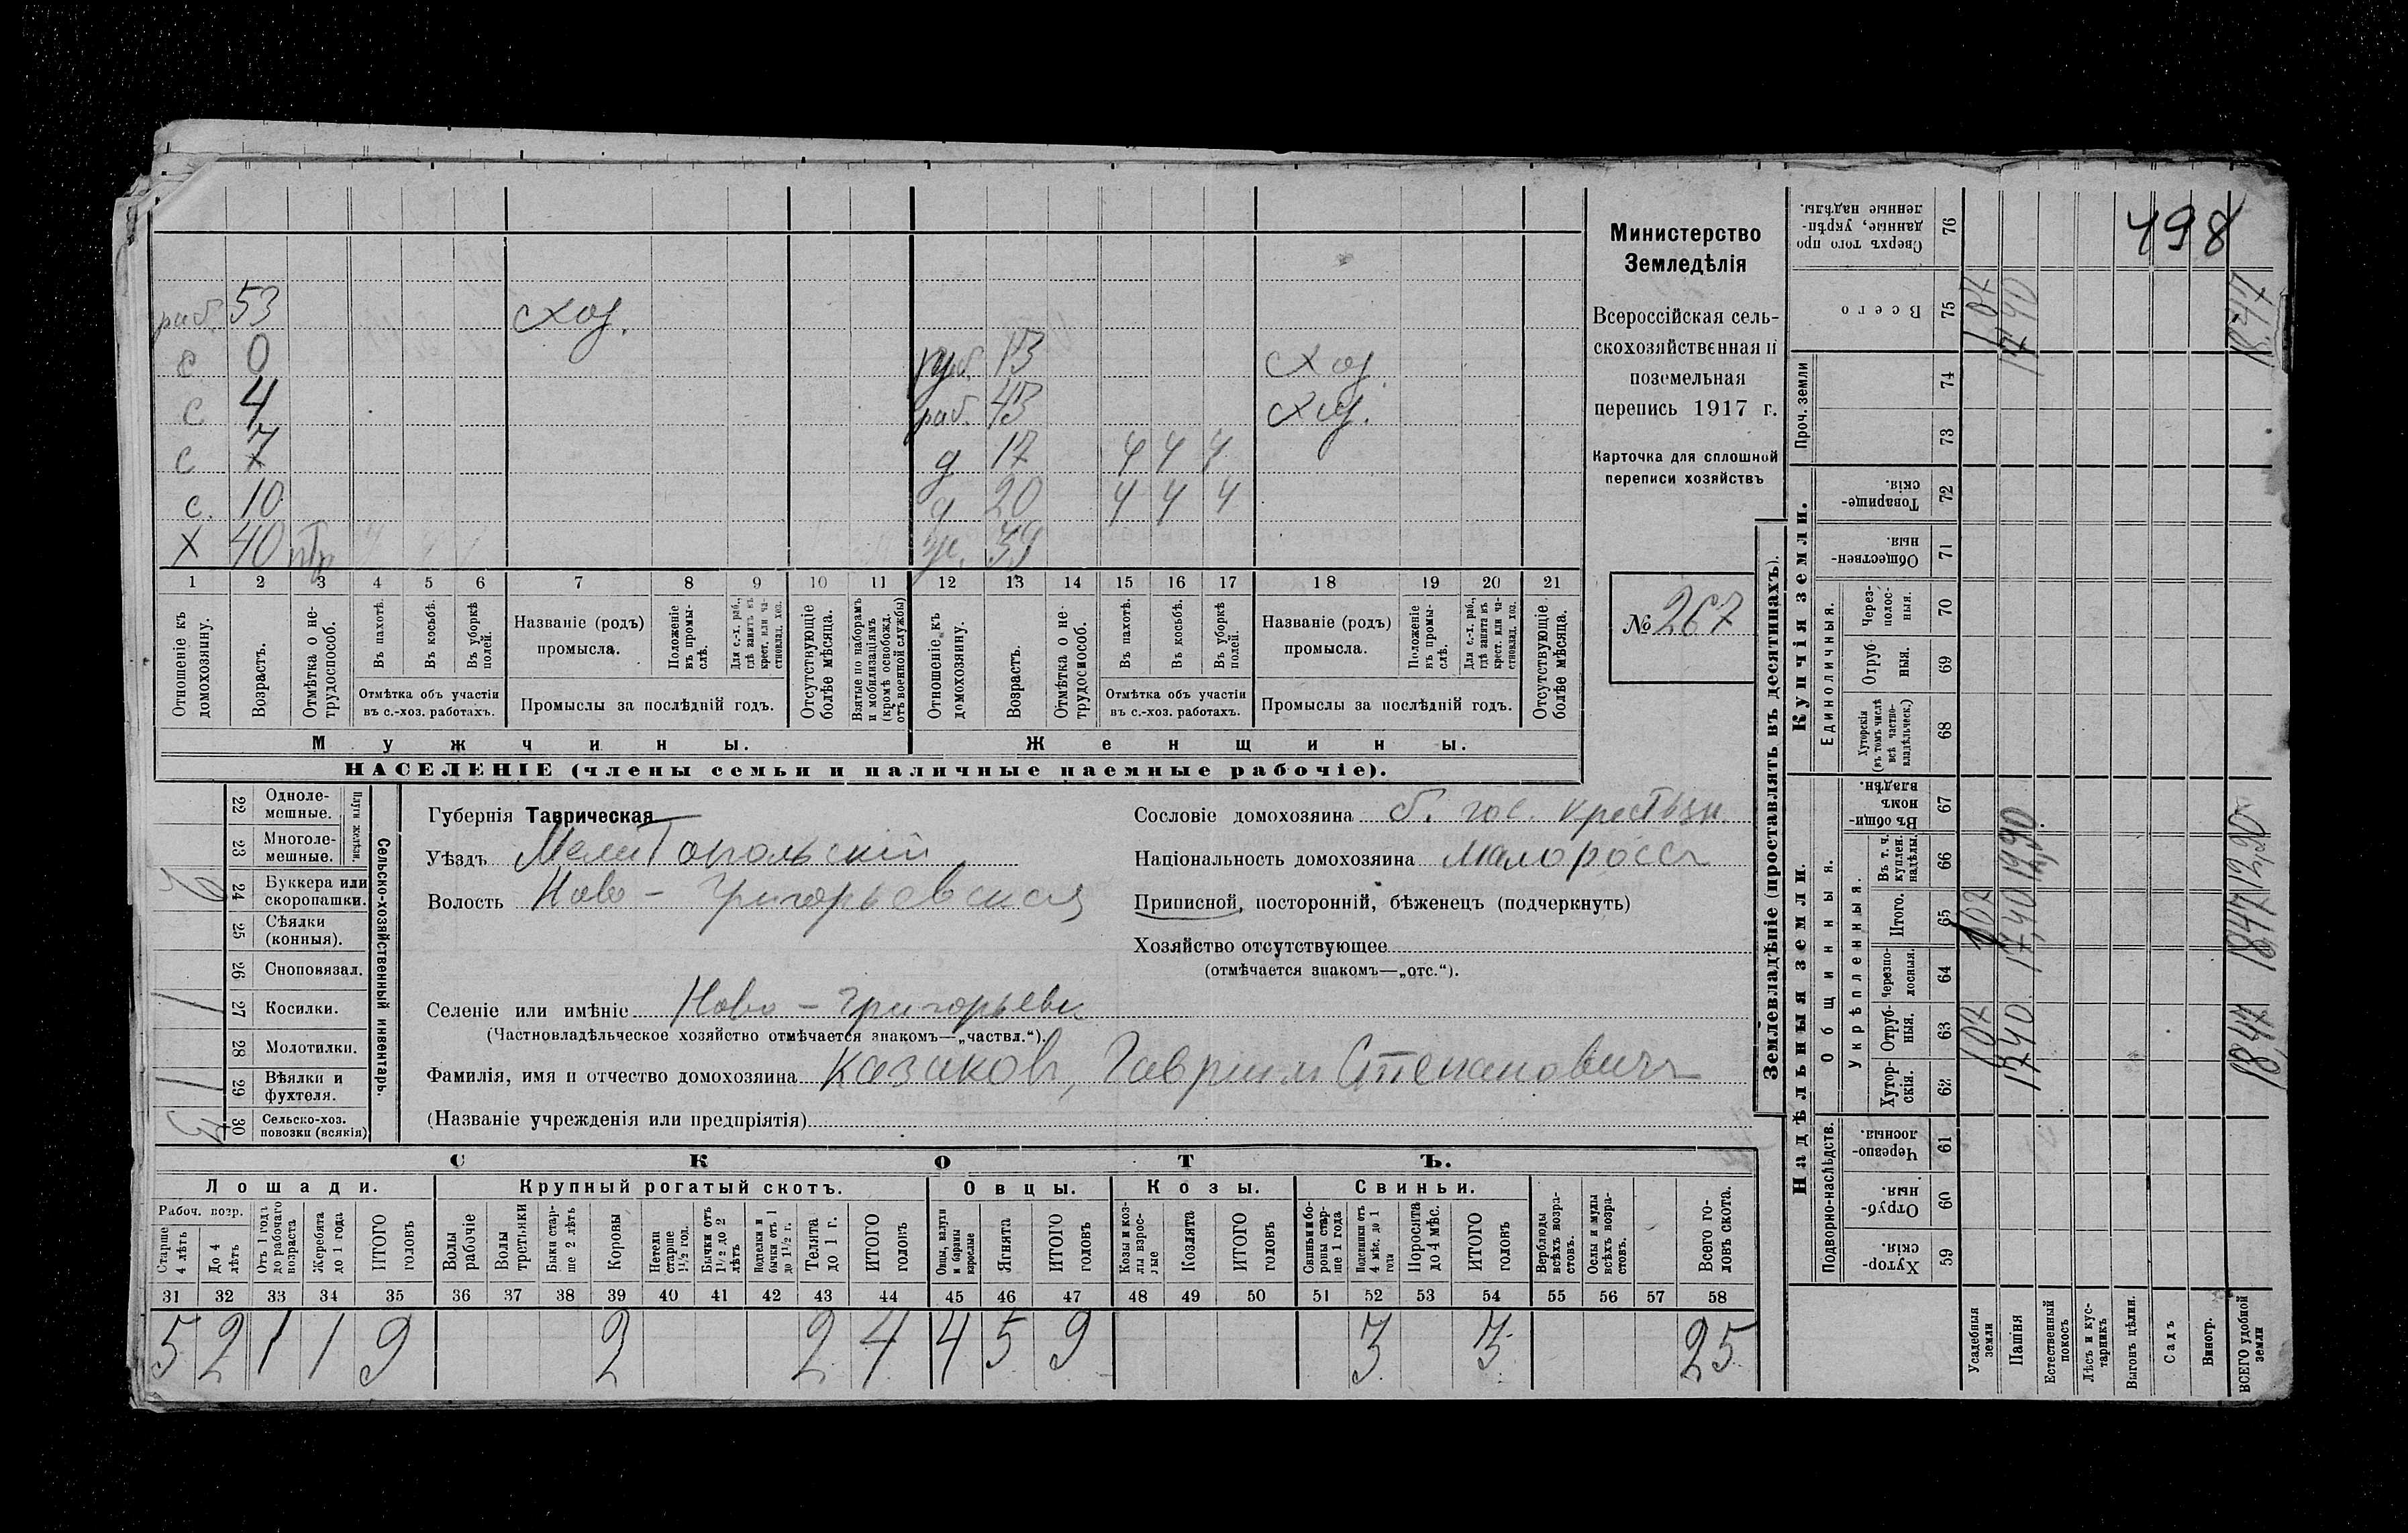 раб. 53 схоз.
с 0 раб. 13 схоз.
с 4 раб. 43 схоз.
с 7 д 17 4 4 4
с. 10 д 20 4 4 4
Х 40 ж. 39
1 2 3 4 5 6 7 8 9 10 11 12 13 14 15 16 17 18 19 20 21
Отношеніе къ домохозяину.
Возрастъ.
Отмѣтка о нетрудоспособ.
Въ пахотѣ.
Въ косьбѣ.
Въ уборкѣ полей.
Отмѣтка объ участіи
въ с.-хоз. работахъ.
Названіе (родъ)
промысла.
Положеніе въ промыслѣ.
Для с.-х. раб., гдѣ занятъ въ крест. или частновлад. хоз.
Промыслы за послѣдній годъ.
Отсутствующіе болѣе мѣсяца.
Взятые по наборамъ и мобилизаціямъ (кромѣ освобожд. отъ военной службы)
Отношеніе къ домохозяину.
Возрастъ.
Отмѣтка о нетрудоспособ.
Въ пахотѣ.
Въ косьбѣ.
Въ уборкѣ полей.
Отмѣтка объ участіи
въ с.-хоз. работахъ.
Названіе (родъ)
промысла.
Положеніе въ промыслѣ.
Для с.-х. раб., гдѣ занята въ крест. или частновлад. хоз.
Промыслы за послѣдній годъ.
Отсутствующіе болѣе мѣсяца.
Мужчины. Женщины.
НАСЕЛЕНІЕ (члены семьи и наличные наемные рабочіе).
Министерство
Земледѣлія
Всероссійская сель-
скохозяйственная и
поземельная
перепись 1917 г.
Карточка для сплошной
переписи хозяйствъ
№ 267
22 Однолемешные.
23 Многолемешные.
Плуги желѣзн.
24 Буккера или скоропашки.
25 Сѣялки (конныя).
26 Сноповязал.
27 Косилки. 1
28 Молотилки.
29 Вѣялки и фухтеля. 1
30 Сельско-хоз. повозки (всякія)
Сельско-хозяйственный инвентарь.
Губернія Таврическая
Уѣздъ Мелитопольскій
Волость Ново-Григорьевская
Сословіе домохозяина б. гос. крестьян.
Національность домохозяина малороссъ
Приписной, посторонній, бѣженецъ (подчеркнуть)
Хозяйство отсутствующее
(отмѣчается знакомъ—„отс.“).
Селеніе или имѣніе Ново-Григорьевк
(Частновладѣльческое хозяйство отмѣчается знакомъ—„частвл.“).
Фамилія, имя и отчество домохозяина Казаковъ, Гавріилъ Степановичъ
(Названіе учрежденія или предпріятія)
СКОТЪ.
Лошади. Крупный рогатый скотъ. Овцы. Козы. Свиньи.
Рабоч. возр.
Старше 4 лѣтъ
До 4 лѣтъ
Отъ 1 года до рабочаго возраста
Жеребята до 1 года
ИТОГО головъ
Волы рабочіе
Волы третьяки
Быки старше 2 лѣтъ
Коровы
Нетели старше 1½ год.
Бычки отъ 1½ до 2 лѣтъ
Подтелки и бычки отъ 1 до 1½ г.
Телята до 1 г.
ИТОГО головъ
Овцы, валухи и бараны взрослые
Ягнята
ИТОГО головъ
Козы и козлы взрослые
Козлята
ИТОГО головъ
Свиньи и боровы старше 1 года
Подсвинки отъ 4 мѣс. до 1 года
Поросята до 4 мѣс.
ИТОГО головъ
Верблюды всѣхъ возрастовъ.
Ослы и мулы всѣхъ возрастовъ.
Всего головъ скота.
31 32 33 34 35 36 37 38 39 40 41 42 43 44 45 46 47 48 49 50 51 52 53 54 55 56 57 58
5 2 1 1 9 2 2 4 4 5 9 3 3 25
Землевладѣніе (проставлять въ десятинахъ).
Купчія земли.
Надѣльныя земли.
Сверхъ того проданные, укрѣпленные надѣлы. 76
498
Всего 75 1,07 17,40 18,47
Проч. земли 74 73
Товарищескія. 72
Общественныя. 71
Единоличныя.
Черезполосныя. 70
Отрубныя. 69
Хуторскія (въ томъ числѣ всѣ частновладѣльческ.) 68
Общинныя.
Въ общинномъ владѣн. 67
Укрѣпленныя.
Въ т. ч. куплен. надѣлы. 66 12,90
Итого. 65 17,40 18,47
Черезполосныя. 64
Отрубныя. 63 1,07 17,40 18,47
Хуторскія. 62
Подворно-наслѣдств.
Черезполосныя. 61
Отрубныя. 60
Хуторскія. 59
Усадебныя земли
Пашня
Естественный покосъ
Лѣсъ и кустарникъ
Выгонъ цѣлин.
Садъ
Виногр.
ВСЕГО удобной земли